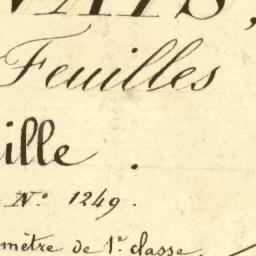 Feuilles
ille.
N° 1249.
mètre de 1re classe.